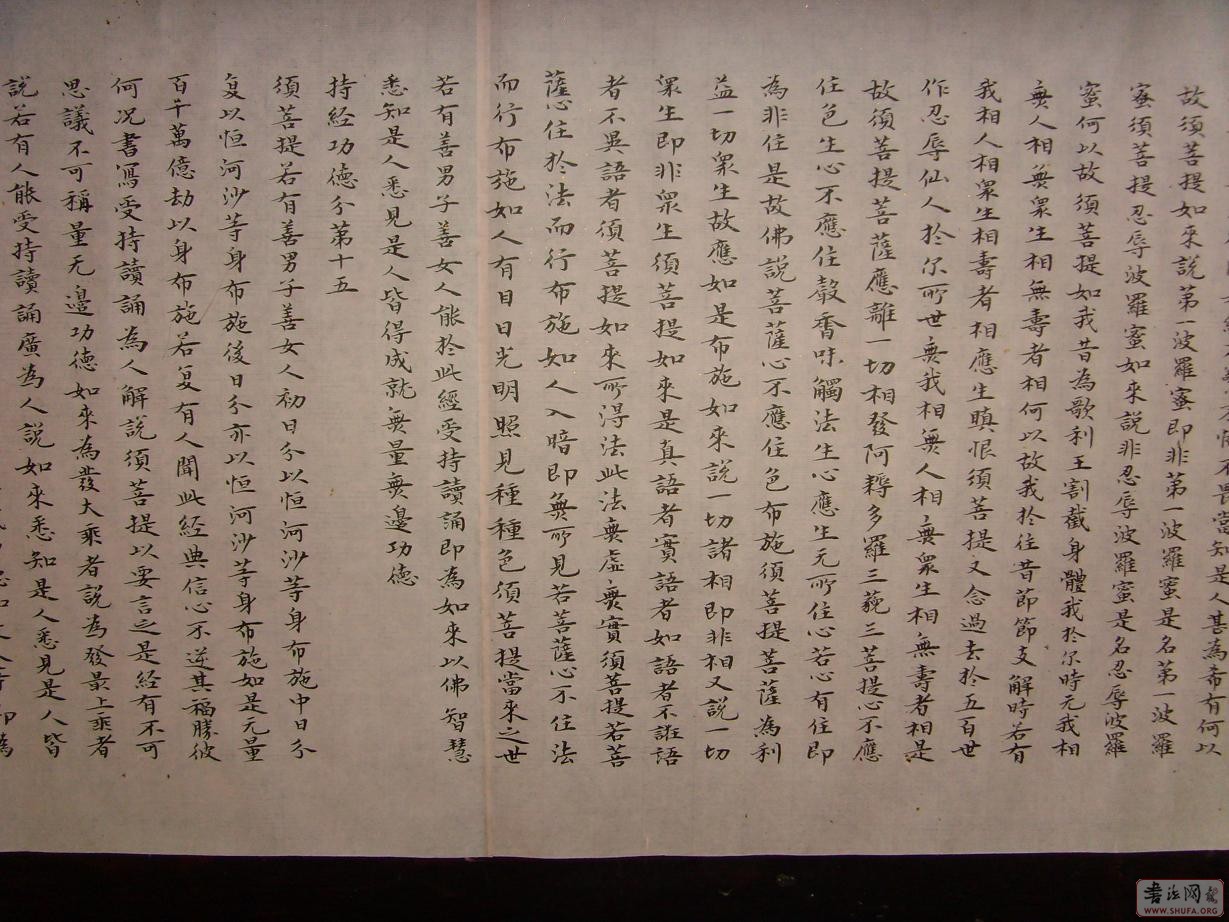 不畏當知是人甚為希有何以
故須菩提如來說第一波羅蜜即非第一波羅蜜是名第一波羅
蜜須菩提忍辱波羅蜜如來說非忍辱波羅蜜是名忍辱波羅
蜜何以故須菩提如我昔為歌利王割截身體我於尒時无我相
無人相無眾生相無壽者相何以故我於往昔節節支解時若有
我相人相眾生相壽者相應生瞋恨須菩提又念過去於五百世
作忍辱仙人於尒所世無我相無人相無眾生相無壽者相是
故須菩提菩薩應離一切相發阿耨多羅三藐三菩提心不應
住色生心不應住聲香味觸法生心應生无所住心若心有住即
為非住是故佛說菩薩心不應住色布施須菩提菩薩為利
益一切眾生故應如是布施如來說一切諸相即非相又說一切
眾生即非眾生須菩提如來是真語者實語者如語者不誑語
者不異語者須菩提如來所得法此法無虛無實須菩提若菩
薩心住於法而行布施如人入暗即無所見若菩薩心不住法
而行布施如人有目日光明照見種種色須菩提當來之世
若有善男子善女人能於此經受持讀誦即為如來以佛智慧
悉知是人悉見是人皆得成就無量無邊功德
持經功德分第十五
須菩提若有善男子善女人初日分以恒河沙等身布施中日分
復以恒河沙等身布施後日分亦以恒河沙等身布施如是无量
百千萬億劫以身布施若復有人聞此經典信心不逆其福勝彼
何況書寫受持讀誦為人解說須菩提以要言之是經有不可
思議不可稱量无邊功德如來為發大乘者說為發最上乘者
說若有人能受持讀誦廣為人說如來悉知是人悉見是人皆
書法网
WWW.SHUFA.ORG